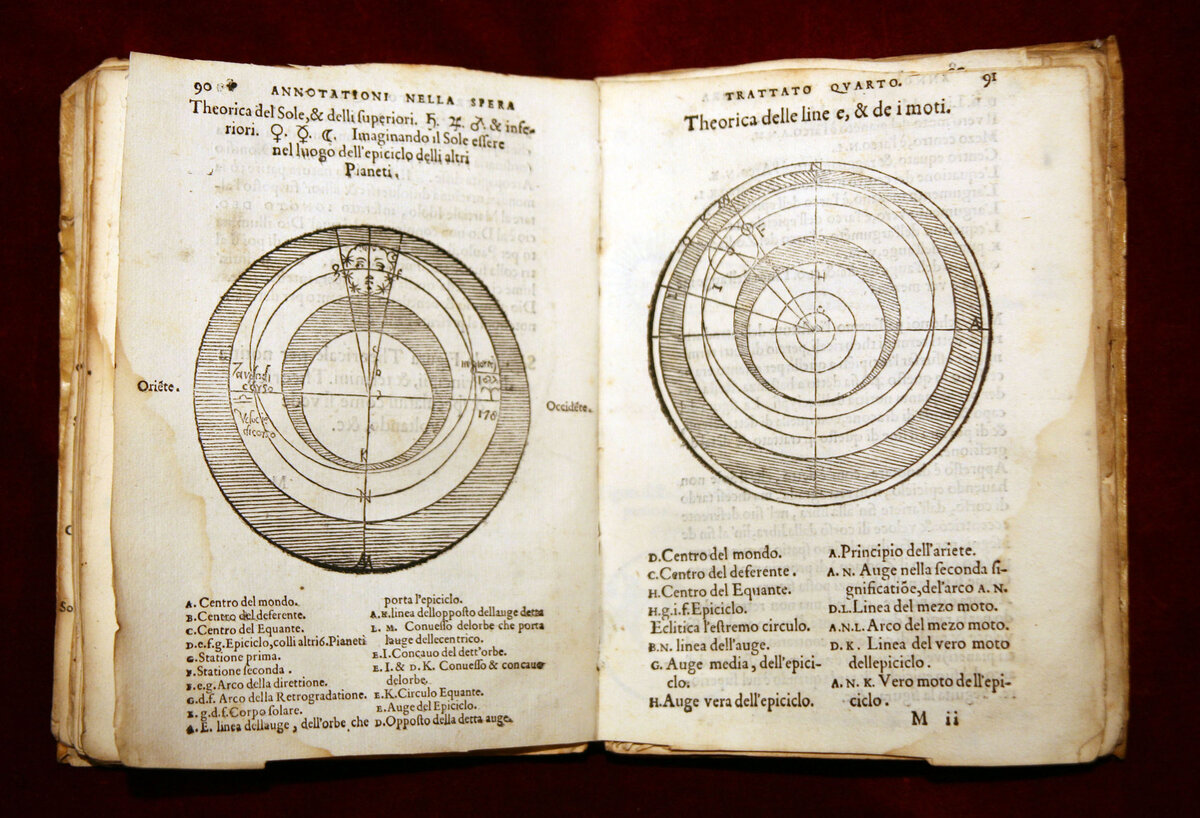 90
ANNOTATIONI NELLA SPERA
Theorica del Sole, & delli superiori. ♄. ♃. ♂. & infe-
riori. ♀. ☿. ☾. Imaginando il Sole essere
nel luogo dell'epiciclo delli altri
Pianeti.
Oriẽte.
Occidẽte.
Veloce
di corso
K
N
A. Centro del mondo.
B. Centro del deferente.
C. Centro del Equante.
D.e.f.g. Epiciclo, colli altri 6. Pianeti
G. Statione prima.
F. Statione seconda.
F.e.g. Arco della direttione.
G.d.f. Arco della Retrogradatione.
E.g.d.f. Corpo solare.
A.E. linea dellauge, dell'orbe che
porta l'epiciclo.
A.N. linea dellopposto dellauge detta
L.M. Conuesso delorbe che porta
lauge delleccentrico.
E.I. Concauo del dett'orbe.
E.I. & D.K. Conuesso & concauo
delorbe.
E.K. Circulo Equante.
E. Auge del Epiciclo.
D. Opposto della detta auge.
91
TRATTATO QVARTO.
Theorica delle line e, & de i moti.
N
K
F
H
C
A
D. Centro del mondo.
C. Centro del deferente.
H. Centro del Equante.
H.g.i.f. Epiciclo.
Eclitica l'estremo circulo.
B.N. linea dell'auge.
G. Auge media, dell'epici-
clo.
H. Auge vera dell'epiciclo.
A. Principio dell'ariete.
A. N. Auge nella seconda si-
gnificatiõe, del'arco A. N.
D.L. Linea del mezo moto.
A.N.L. Arco del mezo moto.
D. K. Linea del vero moto
dellepiciclo.
A. N. K. Vero moto dell'epi-
ciclo.
M ii